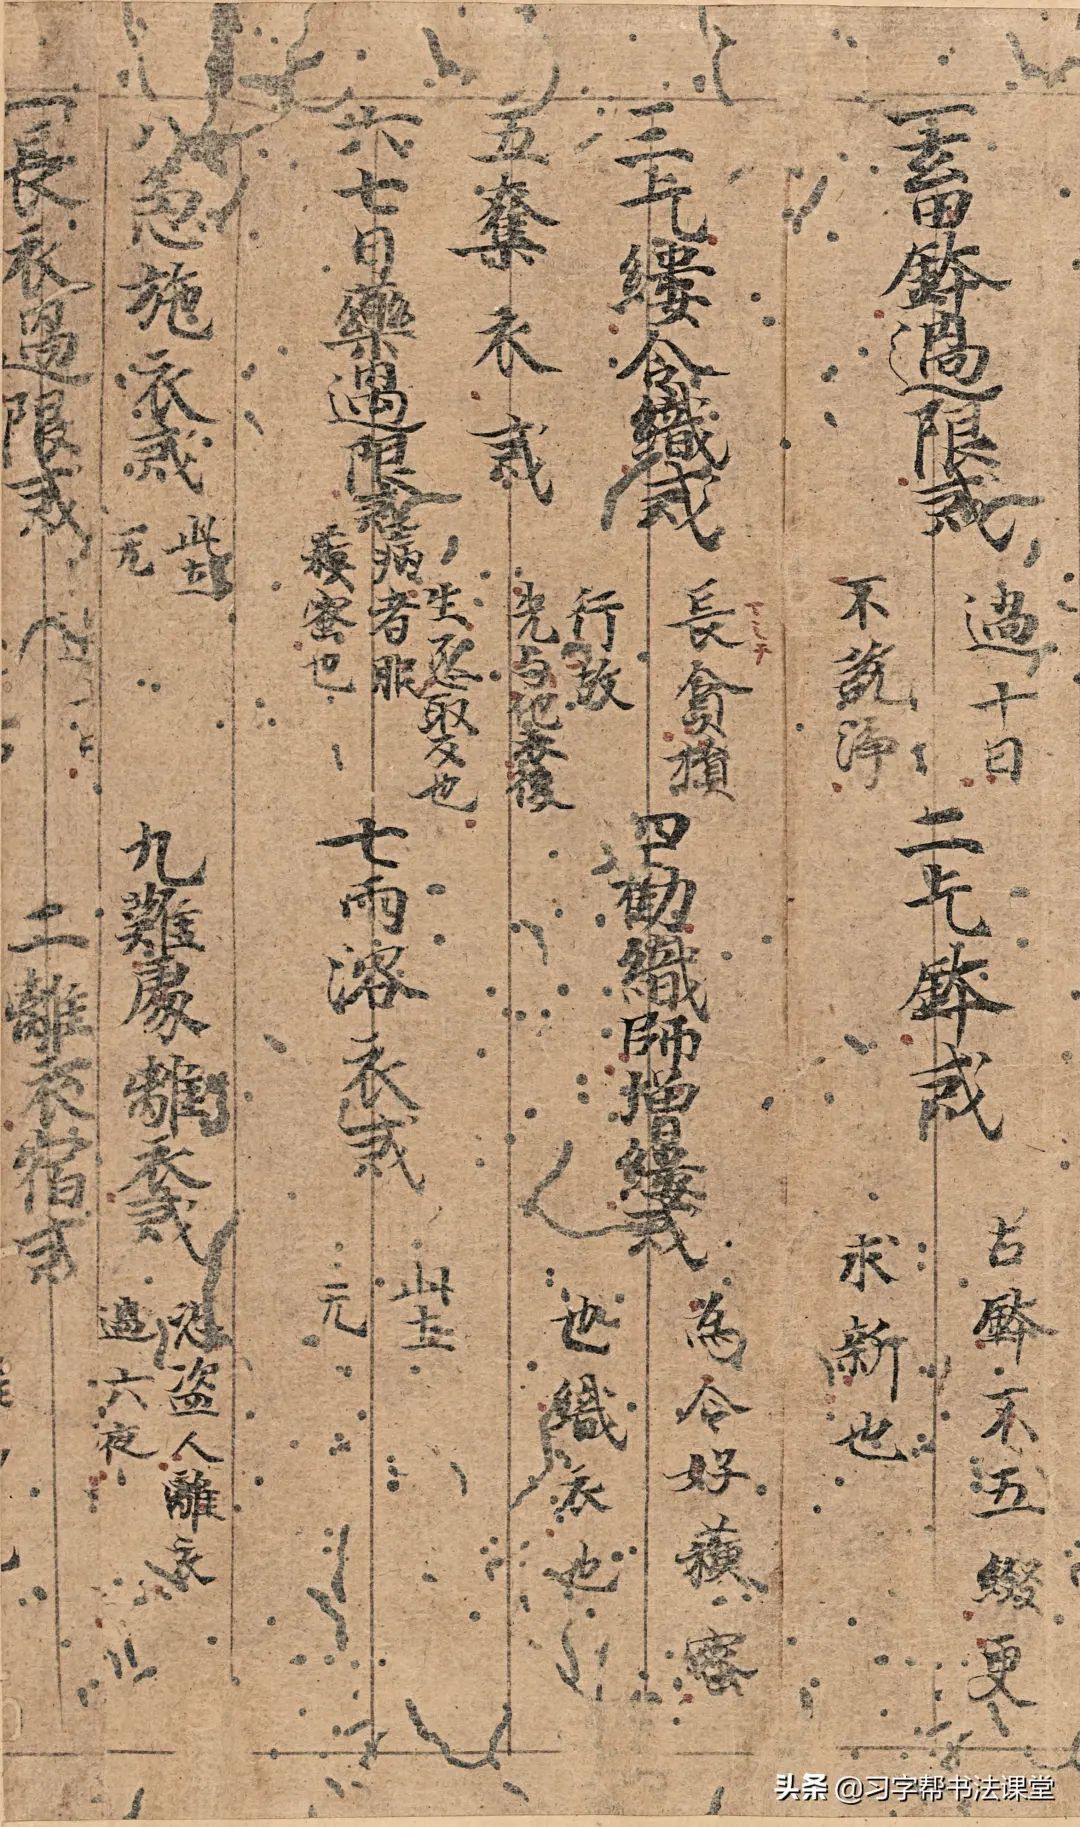 一畜鉢過限戒
過十日
不説淨
二乞鉢戒
古鉢不五綴更
求新也
三乞縷令織戒
長貪損
行故
四勸織師增縷戒
為令好
蜜
也織衣也
五奪衣戒
先与他衣後
生恚取也
六七日藥過限戒
病者服
蜜也
七雨浴衣戒
元
八急施衣戒
元
九難處離衣戒
恐盗人離衣
過六夜
一長衣過限戒
二離衣宿戒
头条 @习字帮书法课堂